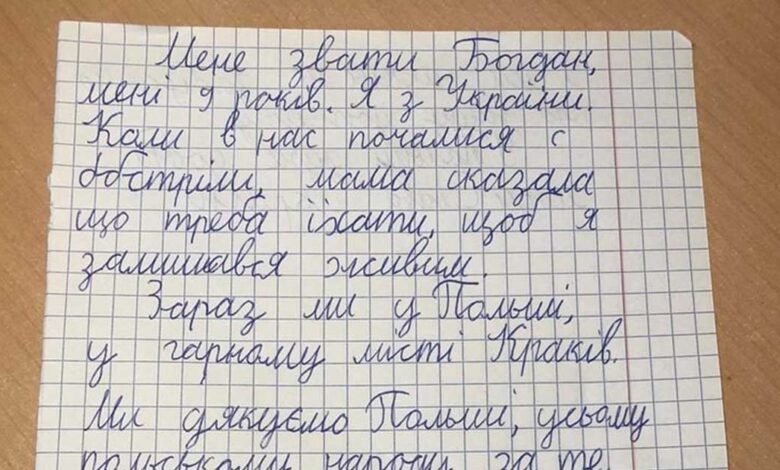 Мене звати Богдан,
мені 9 років. Я з України.
Коли в нас почалися с
обстріли, мама сказала
що треба їхати, щоб я
залишався живим.
Зараз ми у Польші,
у гарному місті Краків.
Ми дякуємо Польші, усьому
польському народу за те,